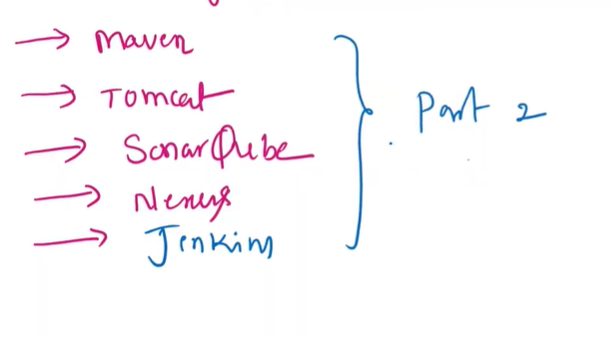 → Maven
→ Tomcat
→ SonarQube
→ Nexus
→ Jenkins
Part 2